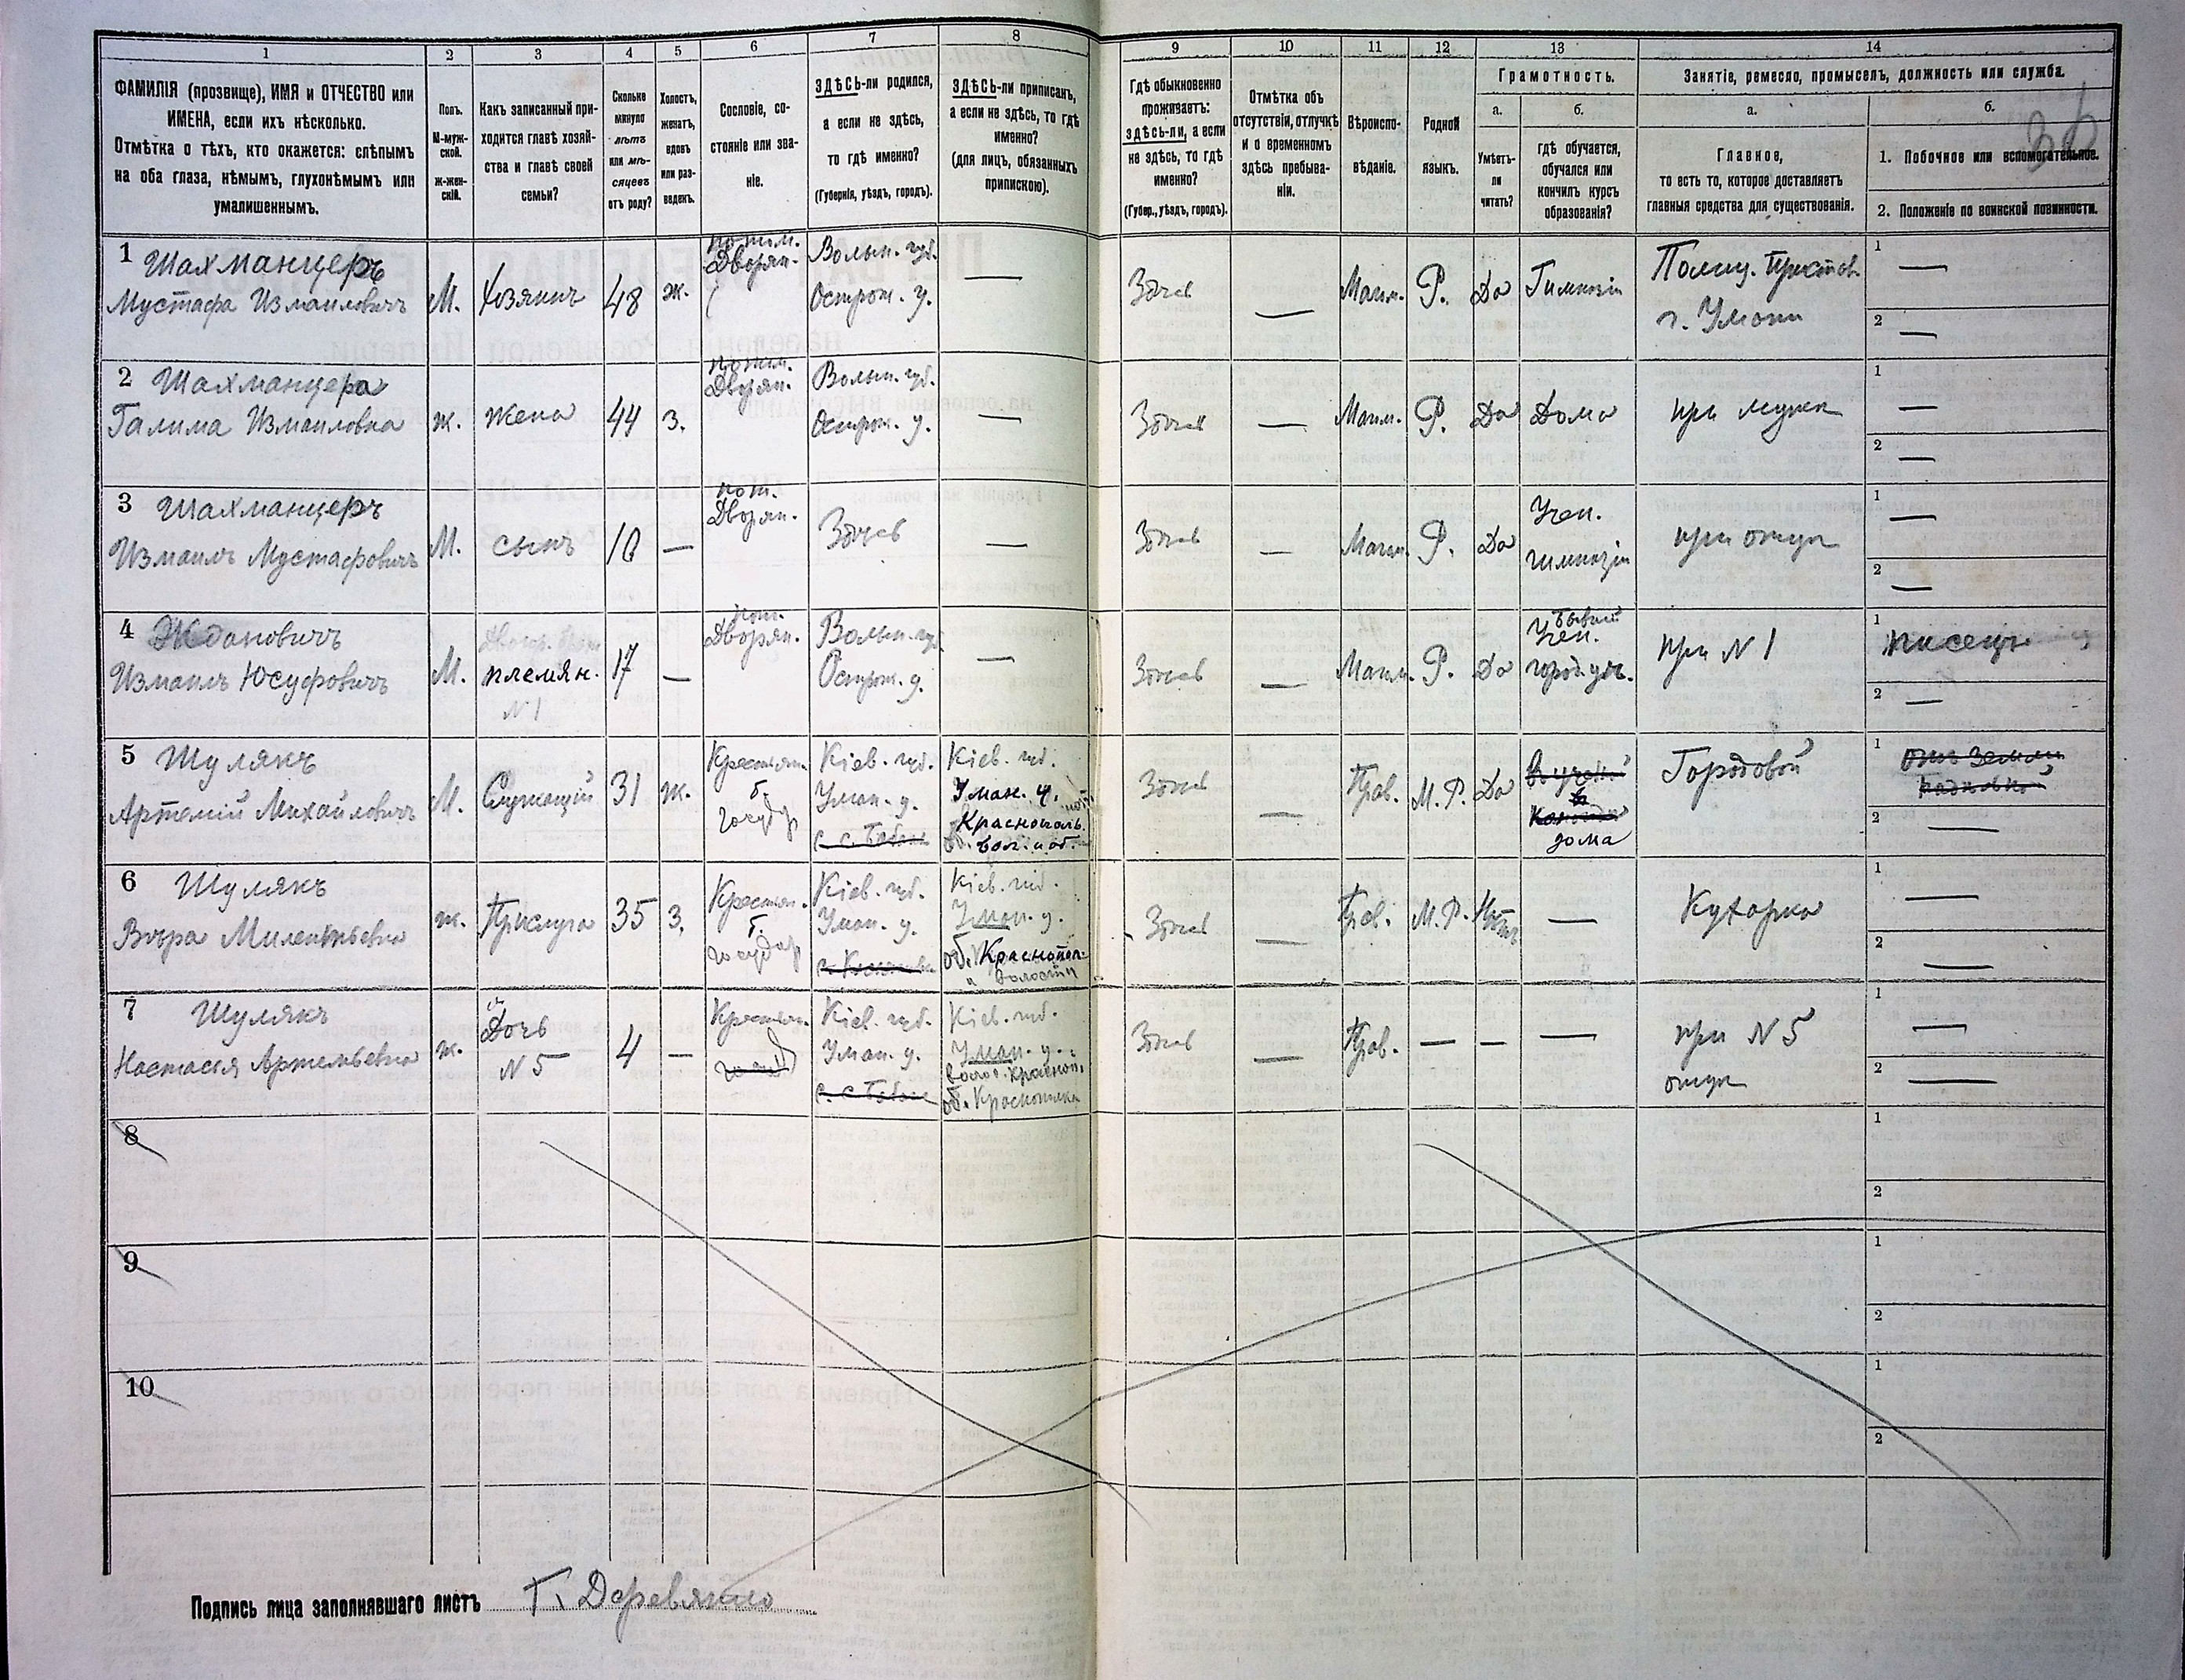 1 2 3 4 5 6 7 8 9 10 11 12 13 14
ФАМИЛІЯ (прозвище), ИМЯ и ОТЧЕСТВО или
ИМЕНА, если ихъ нѣсколько.
Отмѣтка о тѣхъ, кто окажется: слѣпымъ
на оба глаза, нѣмымъ, глухонѣмымъ или
умалишеннымъ.
Полъ.
М-муж-
ской.
ж-жен-
скій.
Какъ записанный при-
ходится главѣ хозяй-
ства и главѣ своей
семьи?
Сколько
минуло
лѣтъ
или мѣ-
сяцевъ
отъ роду?
Холостъ,
женатъ,
вдовъ
или раз-
веденъ.
Сословіе, со-
стояніе или зва-
ніе.
ЗДѢСЬ-ли родился,
а если не здѣсь,
то гдѣ именно?
(Губернія, уѣздъ, городъ).
ЗДѢСЬ-ли приписанъ,
а если не здѣсь, то гдѣ
именно?
(для лицъ, обязанныхъ
припискою).
Гдѣ обыкновенно
проживаетъ:
здѣсь-ли, а если
не здѣсь, то гдѣ
именно?
(Губер., уѣздъ, городъ).
Отмѣтка объ
отсутствіи, отлучкѣ
и о временномъ
здѣсь пребыва-
ніи.
Вѣроиспо-
вѣданіе.
Родной
языкъ.
Грамотность.
а.
Умѣетъ-
ли
читать?
б.
гдѣ обучается,
обучался или
кончилъ курсъ
образованія?
Занятіе, ремесло, промыселъ, должность или служба.
а.
Главное,
то есть то, которое доставляетъ
главныя средства для существованія.
б.
1. Побочное или вспомогательное.
2. Положеніе по воинской повинности.
1 Шахманцеръ
Мустафа Измаиловичъ
М.
Хозяинъ
48
ж.
Дворян.
Волын. губ.
Острож. у.
—
Здѣсь
—
Магм.
Р.
Да
Гимназіи
г. Умани
1 —
2 —
2 Шахманцера
Галима Измаиловна
ж.
жена
44
з.
Дворян.
Волын. губ.
Острож. у.
—
Здѣсь
—
Магм.
Р.
Да
Дома
при мужѣ
1 —
2 —
3 Шахманцеръ
Измаилъ Мустафовичъ
М.
сынъ
10
—
пот.
Дворян.
Здѣсь
—
Здѣсь
—
Магм.
Р.
Да
Учен.
гимназіи
при отцѣ
1 —
2 —
4 Ждановичъ
Измаилъ Юсуфовичъ
М.
племян.
N 1
17
—
пот.
Дворян.
Волын. губ.
Острож. у.
—
Здѣсь
—
Магм.
Р.
Да
бывшій
Учен.
город. уч.
при N 1
1 писецъ
2 —
5 Шулякъ
Артемій Михайловичъ
М.
Служащій
31
ж.
Крестьян.
б.
государ
Кіев. губ.
Уман. у.
Кіев. губ.
Уман. у.
Краснополь.
вол. и об.
Здѣсь
—
Прав.
М. Р.
Да
дома
Городовой
1
2 —
6 Шулякъ
Вѣра Милентьевна
ж.
Прислуга
35
з.
Крестьян.
б.
государ
Кіев. губ.
Уман. у.
Кіев. губ.
Уман. у.
об. Краснопол.
" волости
Здѣсь
—
Прав.
М. Р.
Нѣтъ
—
Кухарка
1 —
2 —
7 Шулякъ
Настасія Артемьевна
ж.
Дочь
N 5
4
—
Крестьян.
Кіев. губ.
Уман. у.
Кіев. губ.
Уман. у.
волос. Краснопол.
об. Краснополка
Здѣсь
—
Прав.
—
—
—
при N 5
отцѣ
1 —
2 —
8
1
2
9
1
2
10
1
2
Подпись лица заполнявшаго листъ Г. Деревянко